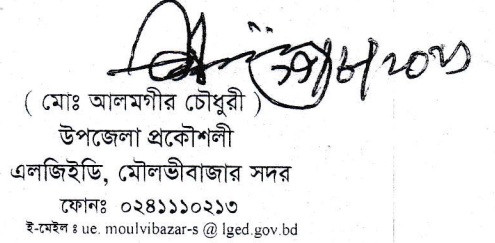 ( মোঃ আলমগীর চৌধুরী )
উপজেলা প্রকৌশলী
এলজিইডি, মৌলভীবাজার সদর
ফোনঃ ০২৪১১১০২১৩
ই-মেইল ঃ ue. moulvibazar-s @ lged.gov.bd